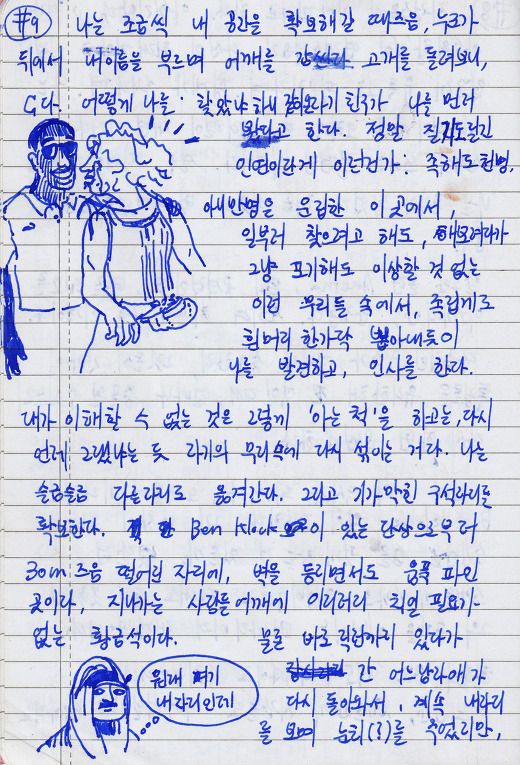 #9
나는 조금씩 내 공간을 확보해갈 때즈음, 누가
뒤에서 내이름을 부르며 어깨를 고개를 돌려보니,
G다. 어떻게 나를 찾았냐 하니 친구가 나를 먼저
봤다고 한다. 정말 질긴
인연이란게 이런건가. 족해도 천명,
아니 만명을 운집한 이곳에서,
일부러 찾으려고 해도, 해보려다가
그냥 포기해도 이상할 것 없는
이런 무리들 속에서, 족집게로
흰머리 한가닥 뽑아내듯이
나를 발견하고, 인사를 한다.
내가 이해할 수 없는 것은 그렇게 '아는 척'을 하고는, 다시
언제 그랬냐는 듯 자기의 무리속에 다시 섞이는 거다. 나는
슬금슬금 다른자리로 옮겨간다. 그리고 기가막힌 구석자리를
확보한다. Ben Klock 이 있는 단상으로부터
30m 즈음 떨어진 자리에, 벽을 등지면서도 움푹 파인
곳이라, 지나가는 사람들 어깨에 이리저리 치일 필요가
없는 황금석이다. 물론 바로 직전까지 있다가
간 어느 남자애가
다시 돌아와서, 계속 내자리
를 보며 눈치(?)를 주었지만,
원래 여기
내자리인데